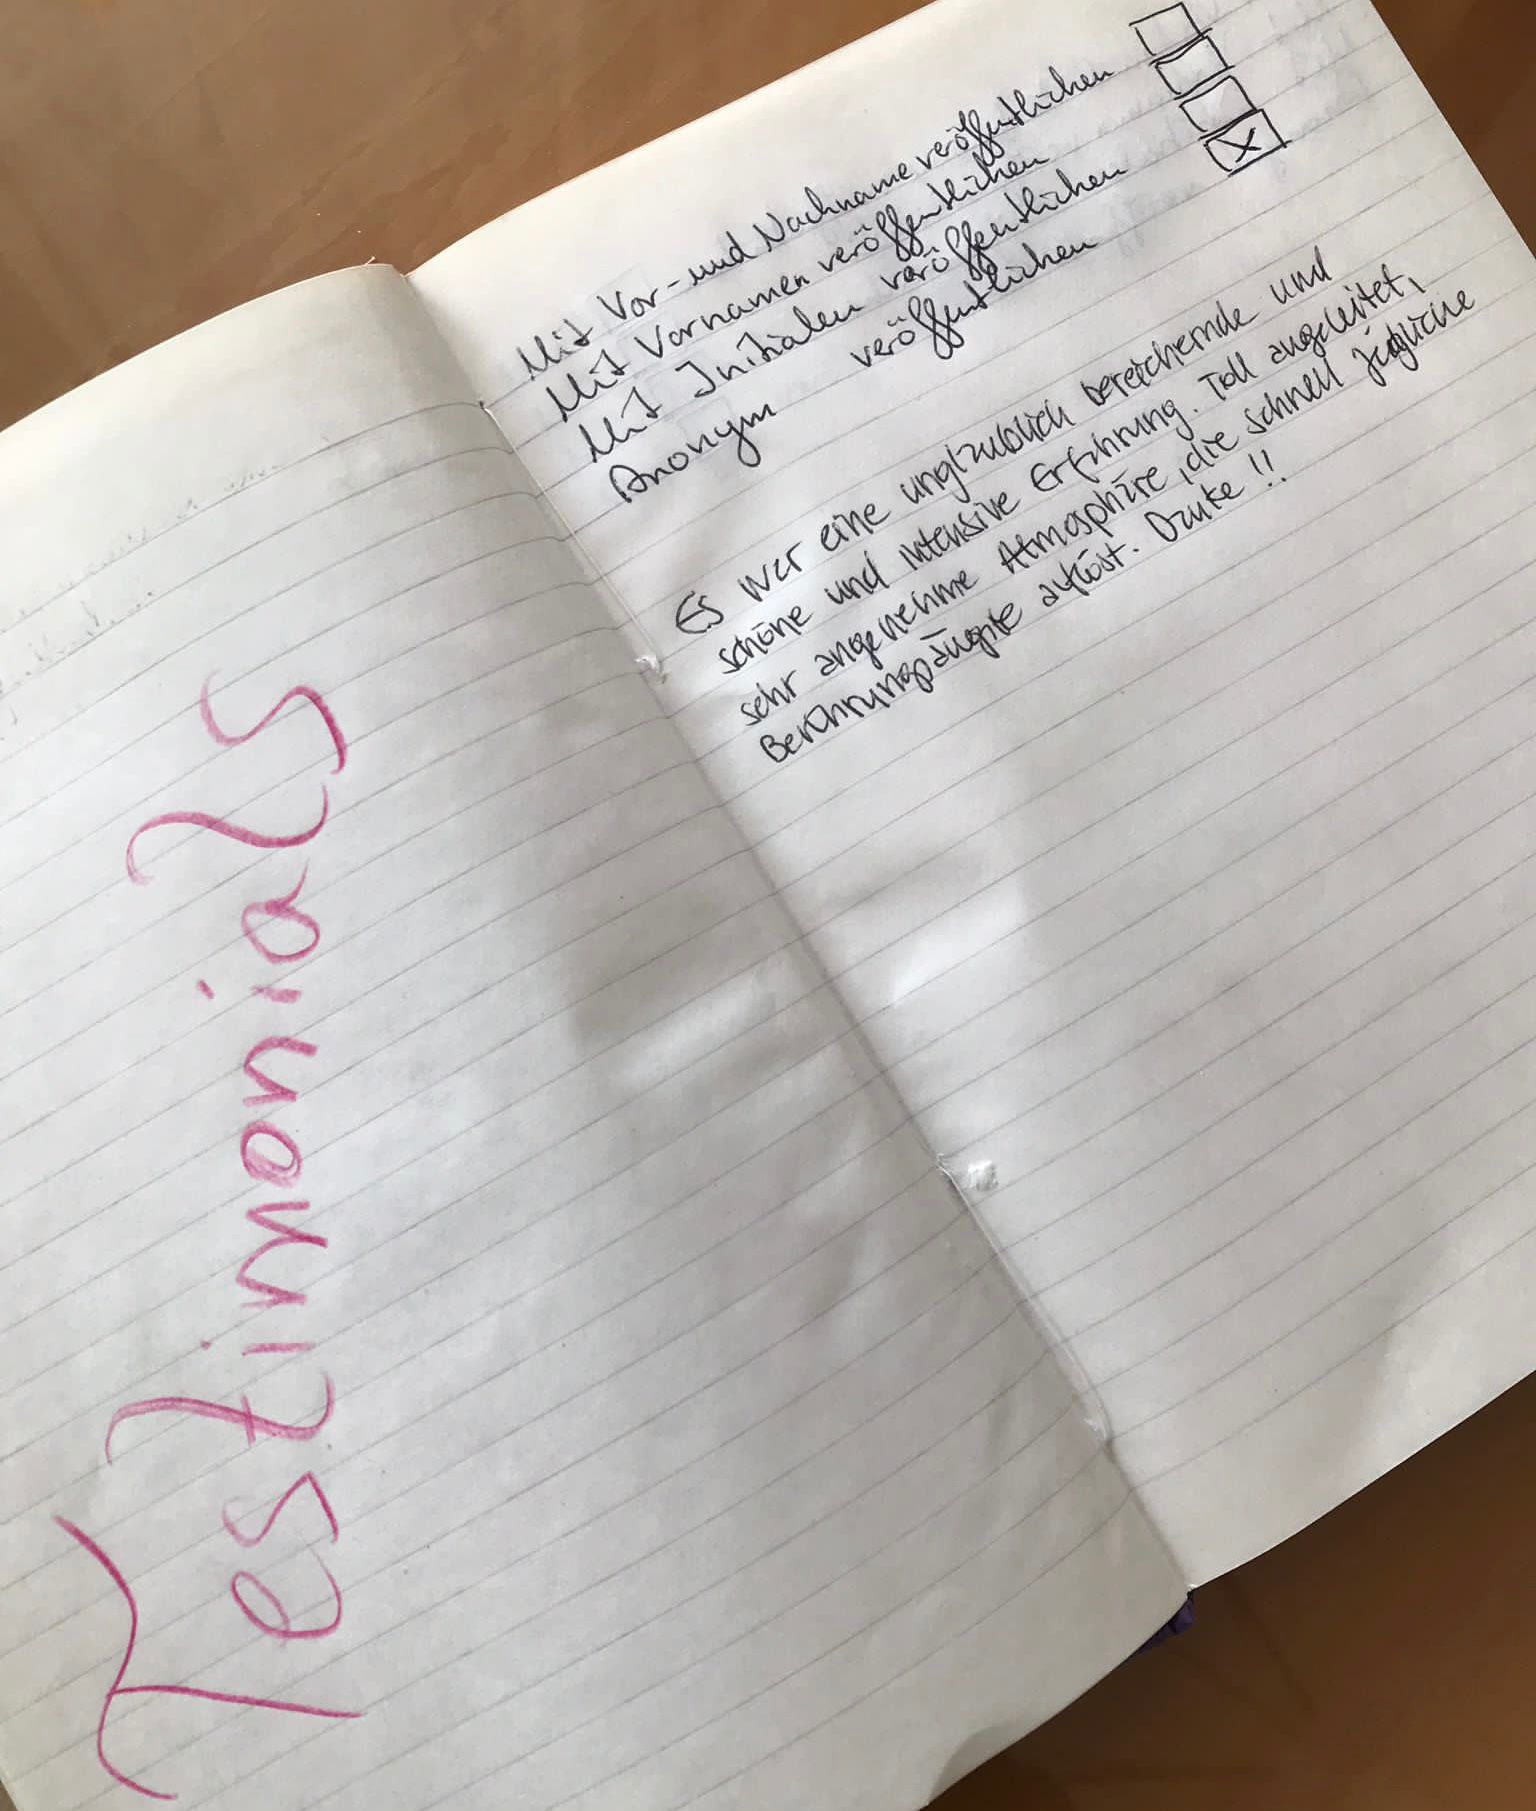 Testimonials
Mit Vor- und Nachname veröffentlichen
Mit Vornamen veröffentlichen
Mit Initialen veröffentlichen
Anonym veröffentlichen
Es war eine unglaublich bereichernde und
schöne und intensive Erfahrung. Toll angeleitet,
sehr angenehme Atmosphäre, die schnell jegliche
Berührungsängste auflöst. Danke!!